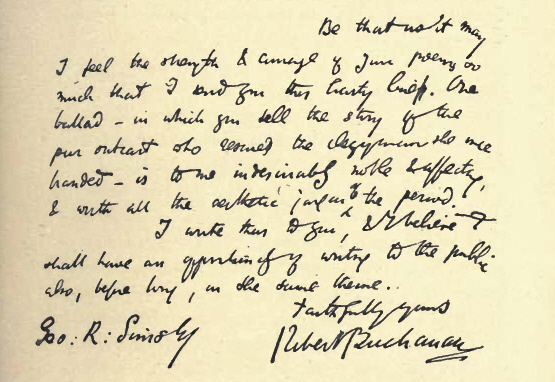 Be that as it may
I feel the strength & courage of your poems so
much that I send you this hasty brief. One
ballad – in which you tell the story of the
poor outcast who rescued the clergyman she once
handed – is to me indescribably noble & affecting,
& worth all the aesthetic jargon of the period.
I write thus to you, & I believe I
shall have an opportunity of writing to the public
also, before long, on the same theme..
Faithfully yours
Geo: R: Sims Esq Robert Buchanan